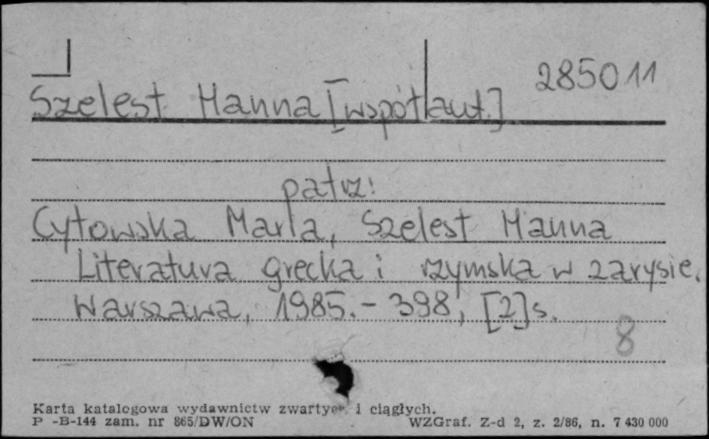 285011
Szelest Hanna [współaut.]
patrz:
Cytowska Maria, Szelest Hanna
Literatura grecka i rzymska w zarysie.
Warszawa, 1985. - 398, [2] s.
8
Karta katalogowa wydawnictw zwartych i ciągłych.
P -B-144 zam. nr 865/DW/ON
WZGraf. Z-d 2, z. 2/86, n. 7 430 000